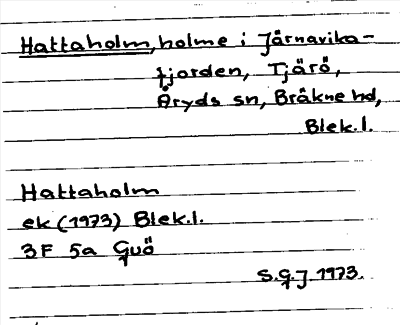 Hattaholm, holme i Järnavika-
fjorden, Tjärö,
Åryds sn, Bräkne hd,
Blek.l.
Hattaholm
ek (1973) Blek.l.
3F 5a Guö
S.G.J. 1973.